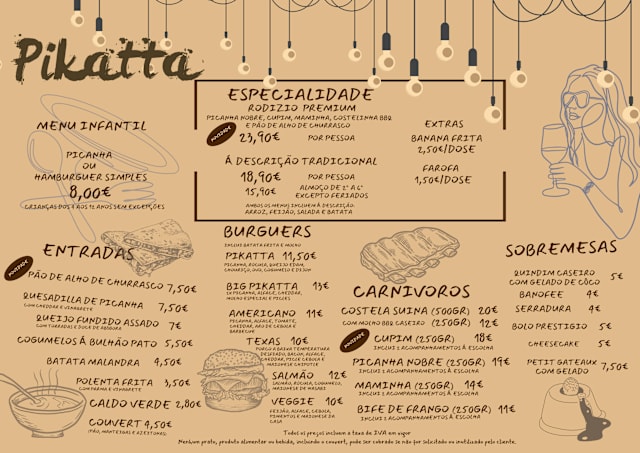 Pikatta
MENU INFANTIL
PICANHA
OU
HAMBURGUER SIMPLES
8,00€
CRIANÇAS DOS 4 AOS 12 ANOS SEM EXCEPÇÕES
ESPECIALIDADE
RODIZIO PREMIUM
PICANHA NOBRE, CUPIM, MAMINHA, COSTELINHA BBQ
E PÃO DE ALHO DE CHURRASCO
23,90€ POR PESSOA
Á DESCRIÇÃO TRADICIONAL
18,90€ POR PESSOA
15,90€ ALMOÇO DE 2ª A 6ª
EXCEPTO FERIADOS
AMBOS OS MENUS INCLUEM À DESCRIÇÃO:
ARROZ, FEIJÃO, SALADA E BATATA
EXTRAS
BANANA FRITA
2,50€/DOSE
FAROFA
1,50€/DOSE
ENTRADAS
PÃO DE ALHO DE CHURRASCO 7,50€
QUESADILLA DE PICANHA 7,50€
COM CHEDDAR E VINAGRETE
QUEIJO FUNDIDO ASSADO 7€
COM TOSTADAS E DOCE DE ABÓBORA
COGUMELOS Á BULHÃO PATO 5,50€
BATATA MALANDRA 4,50€
POLENTA FRITA 3,50€
COM PARMA E VINAGRETE
CALDO VERDE 2,80€
COUVERT 4,50€
(PÃO, MANTEIGAS E AZEITONAS)
BURGUERS
INCLUI BATATA FRITA E MOLHO
PIKATTA 11,50€
PICANHA, RÚCULA, QUEIJO EDAM,
CHOURIÇO, OVO, COGUMELO E DIJON
BIG PIKATTA 13€
2X PICANHA, ALFACE, CHEDDAR,
MOLHO ESPECIAL E PICLES
AMERICANO 11€
PICANHA, ALFACE, TOMATE,
CHEDDAR, ARO DE CEBOLA E
BARBECUE
TEXAS 10€
PORCO A BAIXA TEMPERATURA
DESFIADO, BACON, ALFACE,
CHEDDAR, PICLE CEBOLA E
MAIONESE CHIPOTLE
SALMÃO 12€
SALMÃO, RÚCULA, COGUMELO,
MAIONESE DE WASABI
VEGGIE 10€
FEIJÃO, ALFACE, CEBOLA,
PIMENTOS E MAIONESE DA
CASA
CARNIVOROS
COSTELA SUINA (500GR) 20€
COM MOLHO BBQ CASEIRO (250GR) 12€
CUPIM (250GR) 18€
INCLUI 2 ACOMPANHAMENTOS À ESCOLHA
PICANHA NOBRE (250GR) 19€
INCLUI 2 ACOMPANHAMENTOS À ESCOLHA
MAMINHA (250GR) 14€
INCLUI 2 ACOMPANHAMENTOS À ESCOLHA
BIFE DE FRANGO (250GR) 11€
INCLUI 2 ACOMPANHAMENTOS À ESCOLHA
SOBREMESAS
QUINDIM CASEIRO
COM GELADO DE CÔCO 5€
BANOFEE 4€
SERRADURA 4€
BOLO PRESTIGIO 5€
CHEESECAKE 5€
PETIT GATEAUX
COM GELADO 7,50€
Todos os preços incluem a taxa de IVA em vigor
Nenhum prato, produto alimentar ou bebida, incluindo o couvert, pode ser cobrado se não for solicitado ou inutilizado pelo cliente.